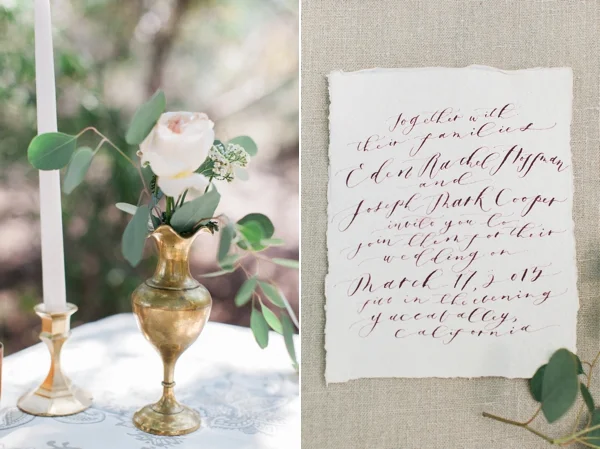 together with
their families
Eden Rachel Hoffman
and
Joseph Mark Cooper
invite you to
join them for their
wedding on
March 11,
five in the evening
yucca valley,
california